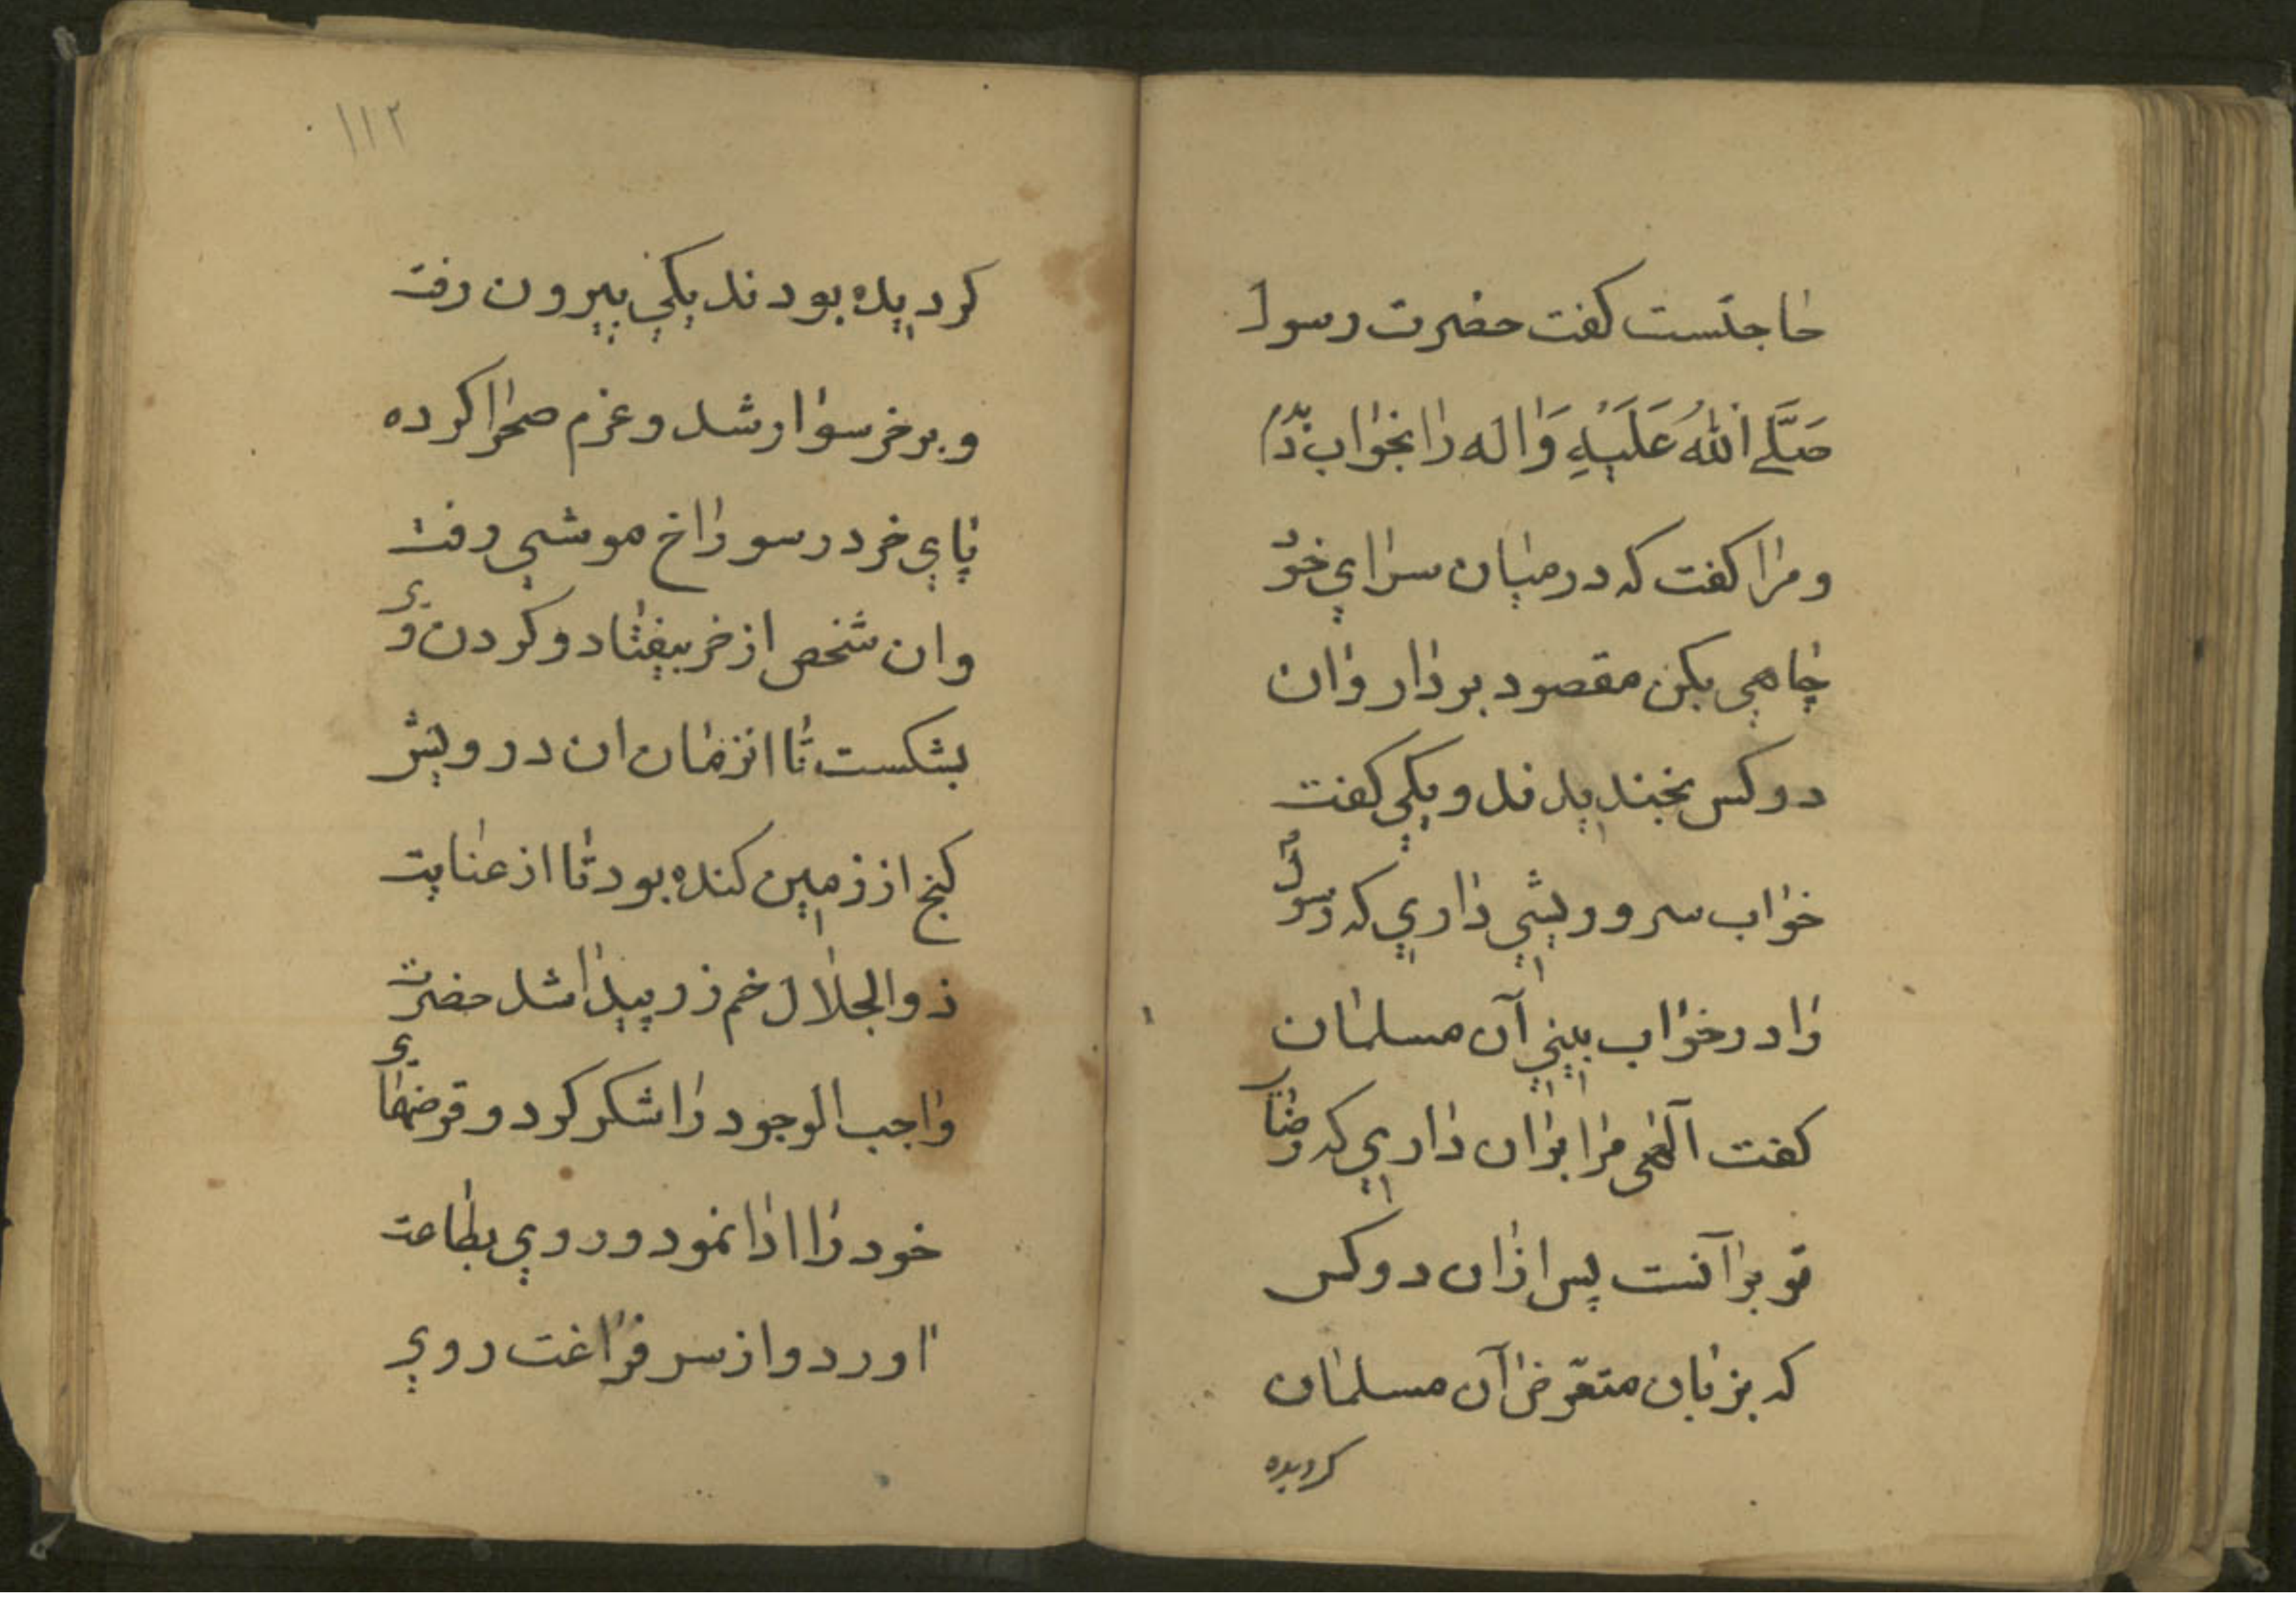 حاجتست کفت حضرت رسول
صَلَّے اللّٰهُ عَلَیْهِ وَاله را بخواب دیدم
و مرا کفت که در میان سرای خود
چاهی بکن مقصود بردار وان
دو کس بخندیدند و یکی کفت
خواب سر و ریشی داری که رسول
را در خواب بینی آن مسلمان
کفت آلهی مرا بران داری که رضای
تو برآنست پس ازان دو کس
که بزبان متعرّض آن مسلمان
کردیده
۱۱۲
کردیده بودند یکی بیرون رفت
و بر خر سوار شد و عزم صحرا کرده
پای خر در سوراخ موشی رفت
وان شخص از خر بیفتاد و کردن وی
بشکست تا انزمان ان درویش
کنج از زمین کنده بود تا از عنایت
ذوالجلال خم زر پیدا شد حضرت
واجب الوجود را شکر کرد و قرضهای
خود را ادا نمود و روی بطاعت
اورد و از سر فراغت روی